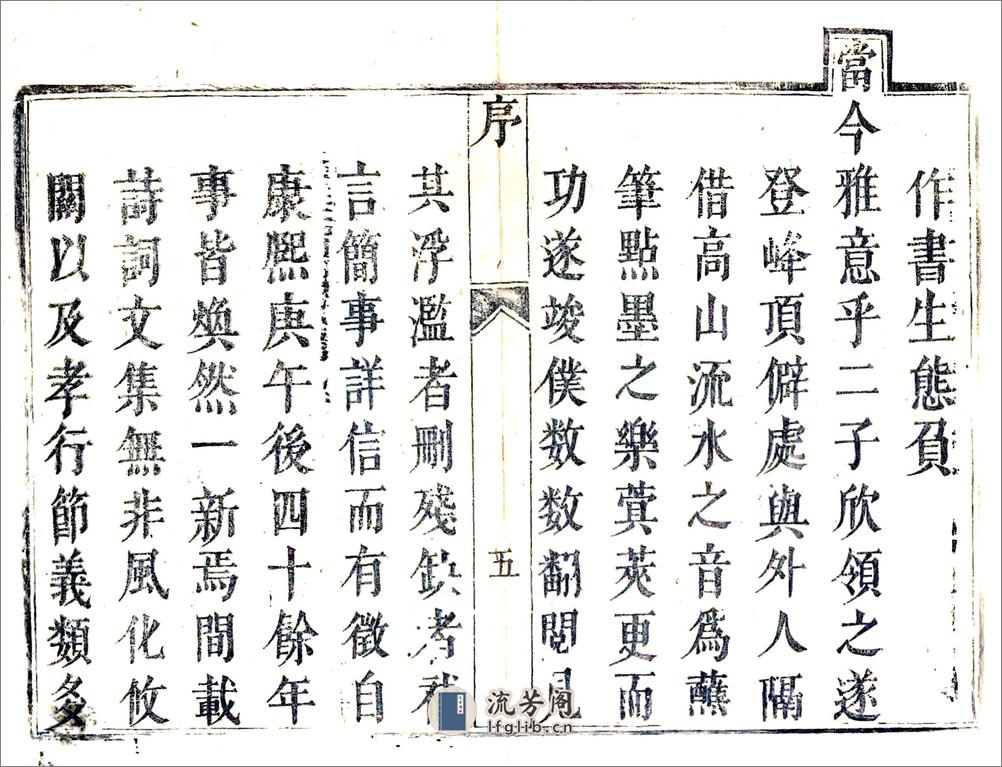 作書生態負
當今雅意乎二子欣領之遂
登峰頂僻處與外人隔
借高山流水之音爲蘸
筆點墨之樂蓂莢更而
功遂竣僕数数翻閱見
序
五
其浮濫者刪殘缺者補
言簡事詳信而有徵自
康熙庚午後四十餘年
事皆煥然一新焉間載
詩詞文集無非風化攸
關以及孝行節義類多
流芳阁
lfglib.cn